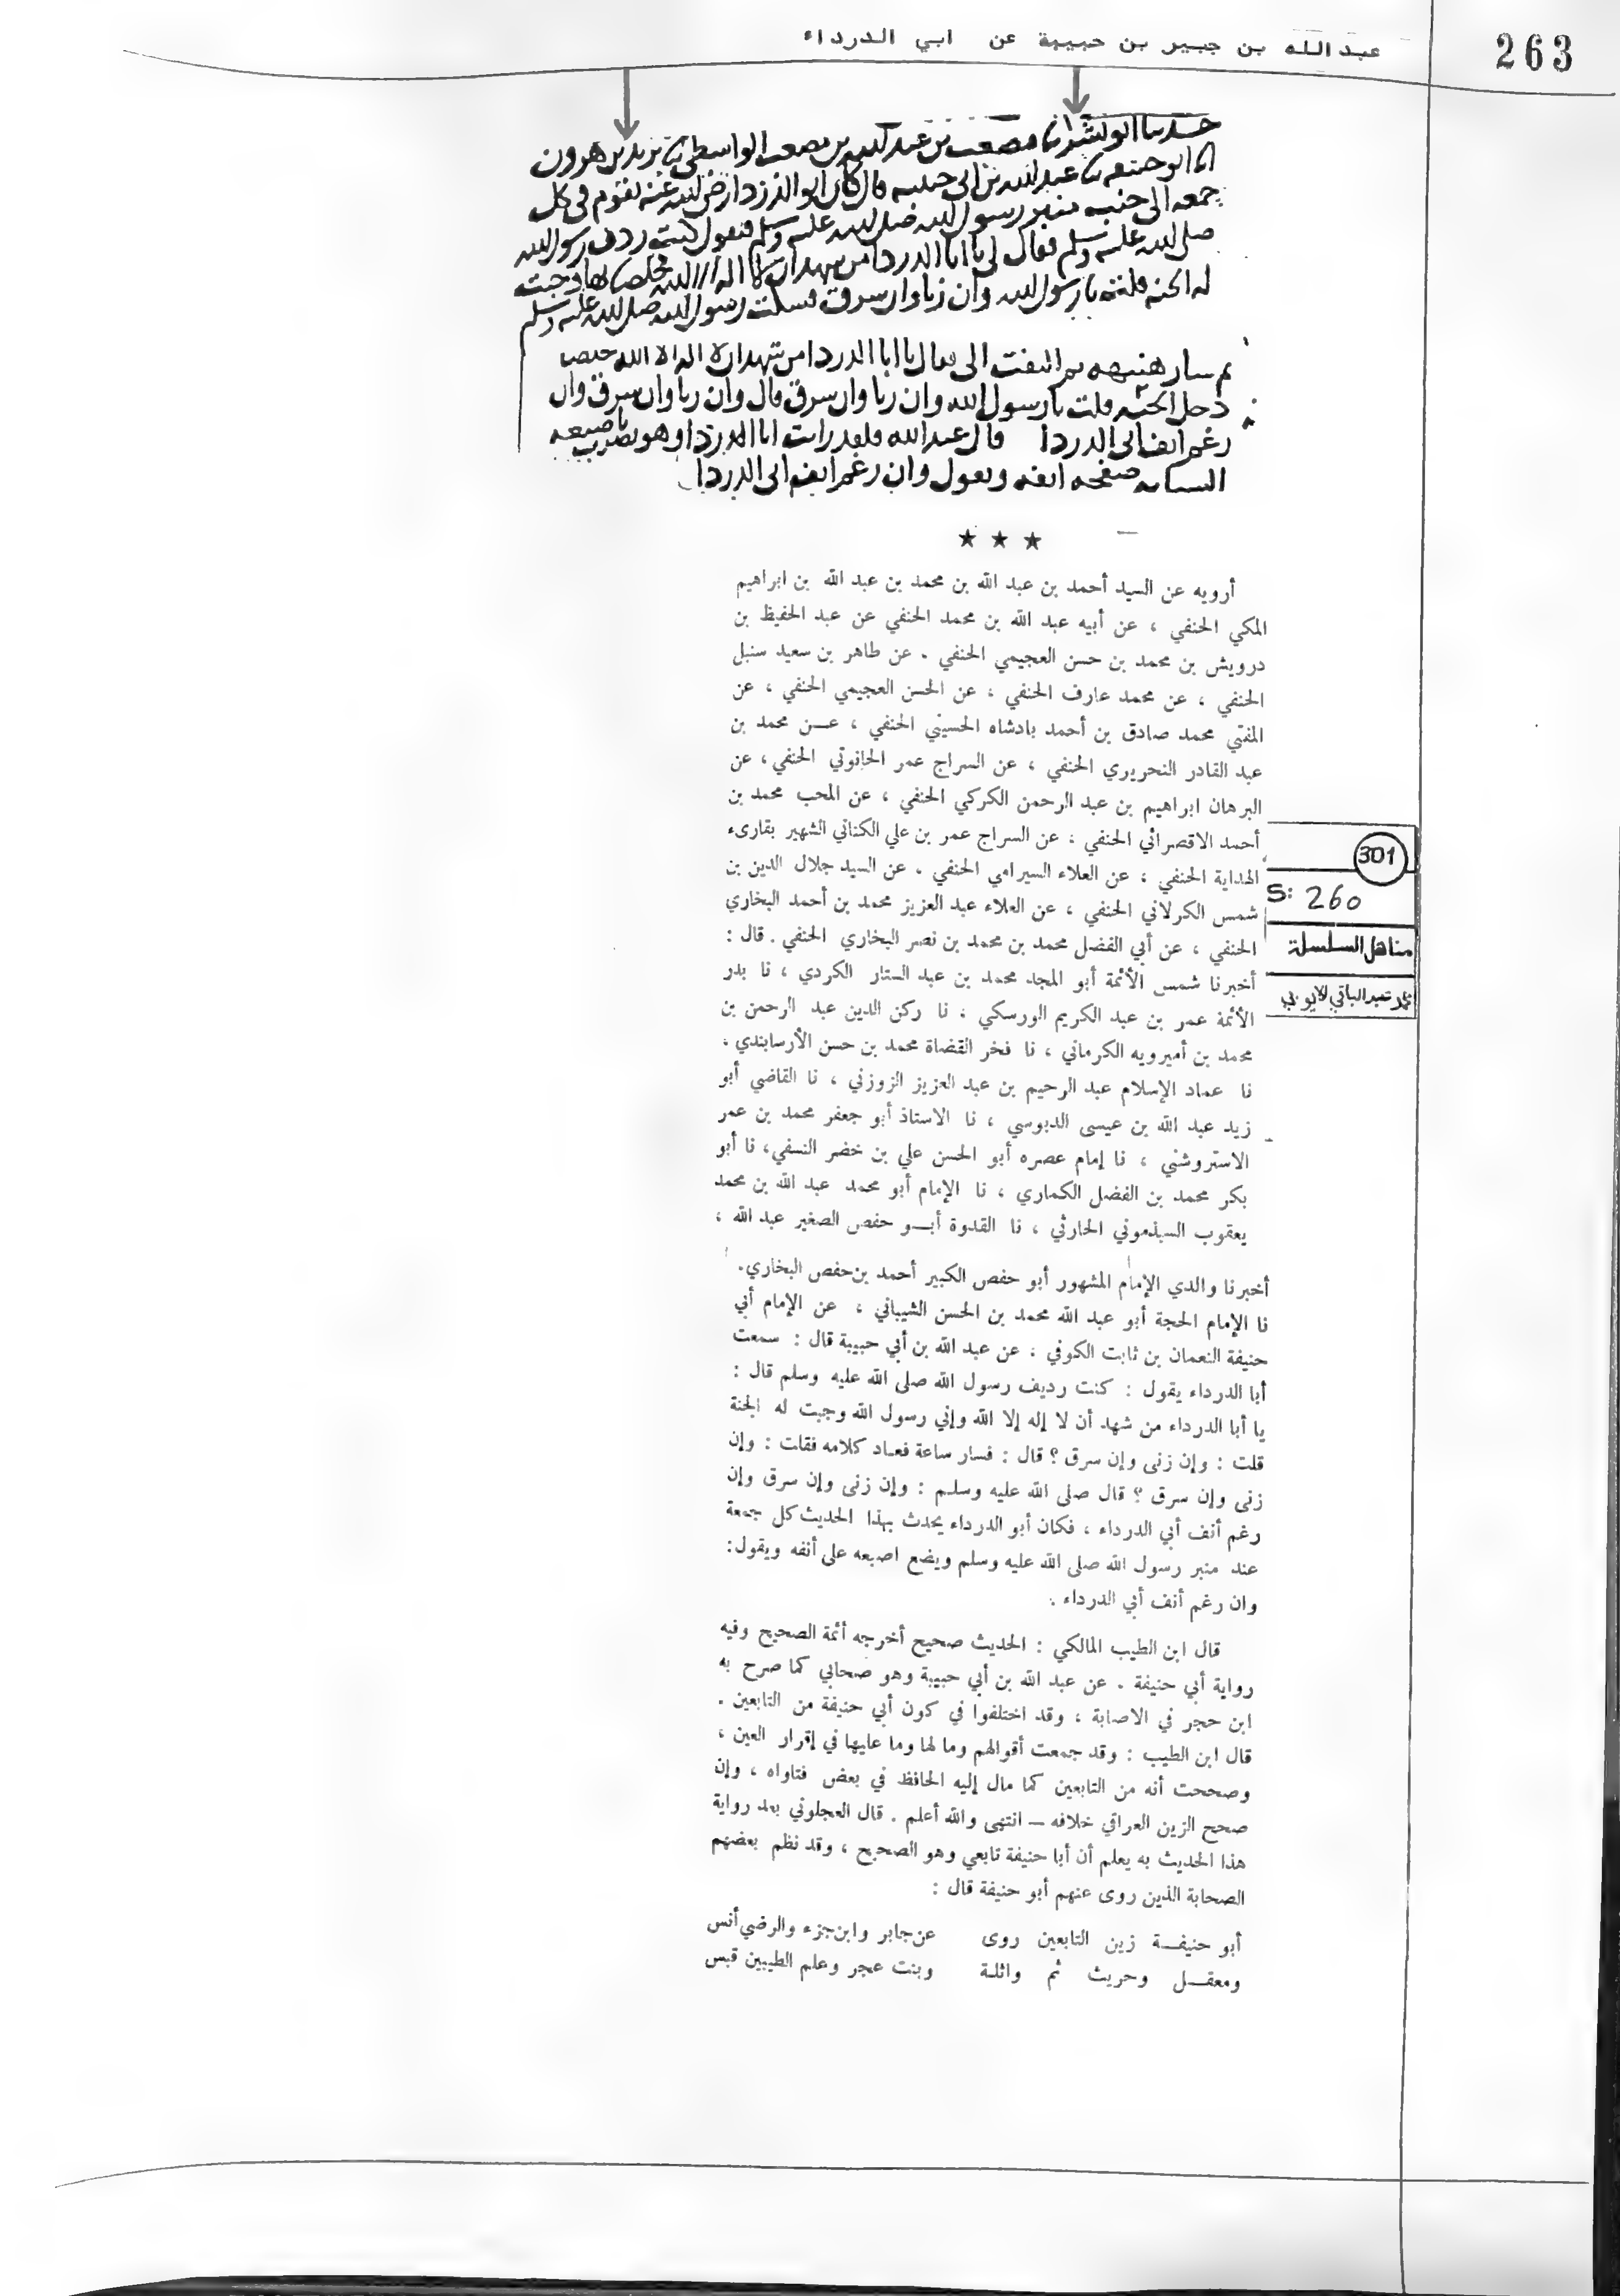 263
عبدالله بن جبير بن حبيبة عن ابي الدرداء
حدثنا ابو بشر انا مصعب بن عبد الله بن مصعب الواسطى ثنا يزيد بن هرون
انا ابو حنيفه ثنا عبد الله بن ابى حبيبه قال كان ابو الدرداء رضى الله عنه يقوم فى كل
جمعه الى جنب منبر رسول الله صلى الله عليه وسلم فيقول كنت ردف رسول الله
صلى الله عليه وسلم فقال لى يا ابا الدردا من شهد ان لا اله الا الله مخلصا بها وجبت
له الجنه قلت يا رسول الله وان زنا وان سرق فسكت رسول الله صلى الله عليه وسلم
ثم سار هنيهه ثم التفت الى فقال يا ابا الدردا من شهد ان لا اله الا الله مخلصا
دخل الجنه قلت يا رسول الله وان زنا وان سرق قال وان زنا وان سرق وان
رغم انف ابى الدردا قال عبد الله فلقد رايت ابا الدردا وهو يضرب باصبعه
السبابه صفحه انفه ويقول وان رغم انف ابى الدردا
★ ★ ★
أرويه عن السيد أحمد بن عبد الله بن محمد بن عبد الله بن ابراهيم
المكي الحنفي ، عن أبيه عبد الله بن محمد الحنفي عن عبد الحفيظ بن
درويش بن محمد بن حسن العجيمي الحنفي . عن طاهر بن سعيد سنبل
الحنفي ، عن محمد عارف الحنفي ، عن الحسن العجيمي الحنفي ، عن
المفتي محمد صادق بن أحمد بادشاه الحسيني الحنفي ، عـن محمد بن
عبد القادر النحريري الحنفي ، عن السراج عمر الحانوتي الحنفي ، عن
البرهان ابراهيم بن عبد الرحمن الكركي الحنفي ، عن المحب محمد بن
أحمد الاقصرائي الحنفي ، عن السراج عمر بن علي الكناني الشهير بقارىء
الهداية الحنفي ، عن العلاء السيرامي الحنفي ، عن السيد جلال الدين بن
شمس الكرلاني الحنفي ، عن العلاء عبد العزيز محمد بن أحمد البخاري
الحنفي ، عن أبي الفضل محمد بن محمد بن نصر البخاري الحنفي . قال :
أخبرنا شمس الأئمة أبو المجد محمد بن عبد الستار الكردي ، نا بدر
الأئمة عمر بن عبد الكريم الورسكي ، نا ركن الدين عبد الرحمن بن
محمد بن أميرويه الكرماني ، نا فخر القضاة محمد بن حسن الأرسابندي ،
نا عماد الإسلام عبد الرحيم بن عبد العزيز الزوزني ، نا القاضي أبو
زيد عبد الله بن عيسى الدبوسي ، نا الاستاذ أبو جعفر محمد بن عمر
الاستروشني ، نا إمام عصره أبو الحسن علي بن خضر النسفي، نا أبو
بكر محمد بن الفضل الكماري ، نا الإمام أبو محمد عبد الله بن محمد
يعقوب السبذموني الحارثي ، نا القدوة أبـو حفص الصغير عبد الله ،
أخبرنا والدي الإمام المشهور أبو حفص الكبير أحمد بن حفص البخاري.
نا الإمام الحجة أبو عبد الله محمد بن الحسن الشيباني ، عن الإمام أبي
حنيفة النعمان بن ثابت الكوفي ، عن عبد الله بن أبي حبيبة قال : سمعت
أبا الدرداء يقول : كنت رديف رسول الله صلى الله عليه وسلم قال :
يا أبا الدرداء من شهد أن لا إله إلا الله وإني رسول الله وجبت له الجنة
قلت : وإن زنى وإن سرق ؟ قال : فسار ساعة فعاد كلامه فقلت : وإن
زنى وإن سرق ؟ قال صلى الله عليه وسلم : وإن زنى وإن سرق وإن
رغم أنف أبي الدرداء ، فكان أبو الدرداء يحدث بهذا الحديث كل جمعة
عند منبر رسول الله صلى الله عليه وسلم ويضع اصبعه على أنفه ويقول:
وان رغم أنف أبي الدرداء .
قال ابن الطيب المالكي : الحديث صحيح أخرجه أئمة الصحيح وفيه
رواية أبي حنيفة . عن عبد الله بن أبي حبيبة وهو صحابي كما صرح به
ابن حجر في الاصابة ، وقد اختلفوا في كون أبي حنيفة من التابعين .
قال ابن الطيب : وقد جمعت أقوالهم وما لها وما عليها في إقرار العين ،
وصححت أنه من التابعين كما مال إليه الحافظ في بعض فتاواه ، وإن
صحح الزين العراقي خلافه – انتهى والله أعلم . قال العجلوني بعد رواية
هذا الحديث به يعلم أن أبا حنيفة تابعي وهو الصحيح ، وقد نظم بعضهم
الصحابة الذين روى عنهم أبو حنيفة قال :
أبو حنيفـة زين التابعين روى عن جابر وابن جزء والرضي أنس
ومعقـل وحريث ثم واثلة وبنت عجر وعلم الطيبين قبس
301
S: 260
مناهل السلسلة
محمد عبد الباقي الايوبي